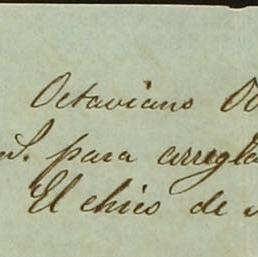 Octaviano
S. para arregla
El chico de